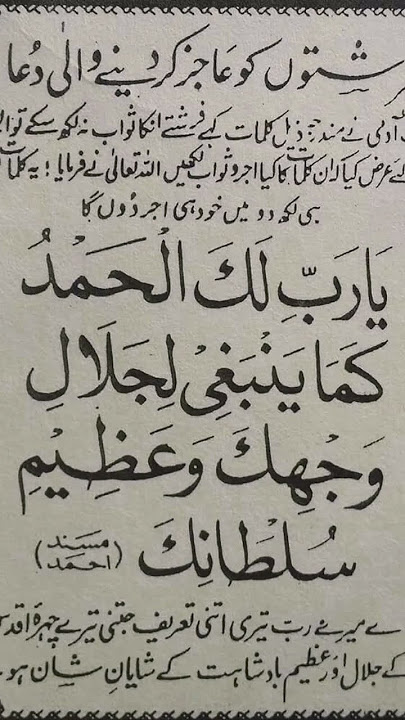 رشتوں کو عاجز کر دینے والی دُعا
آدمی نے مندرجہ ذیل کلمات کہے فرشتے انکا ثواب نہ لکھ سکے تو
عرض کیا کہ ان کلمات کا کیا اجر و ثواب لکھیں اللہ تعالیٰ نے فرمایا! یہ کلمات
ہی لکھ دو میں خود ہی اجر دُوں گا
يَارَبِّ لَكَ الْحَمْدُ
كَمَا يَنْبَغِيْ لِجَلَالِ
وَجْهِكَ وَعَظِيْمِ
سُلْطَانِكَ (مسند احمد)
اے میرے رب تیری اتنی تعریف جتنی تیرے چہرۂ اقدس
کے جلال اور عظیم بادشاہت کے شایانِ شان ہو